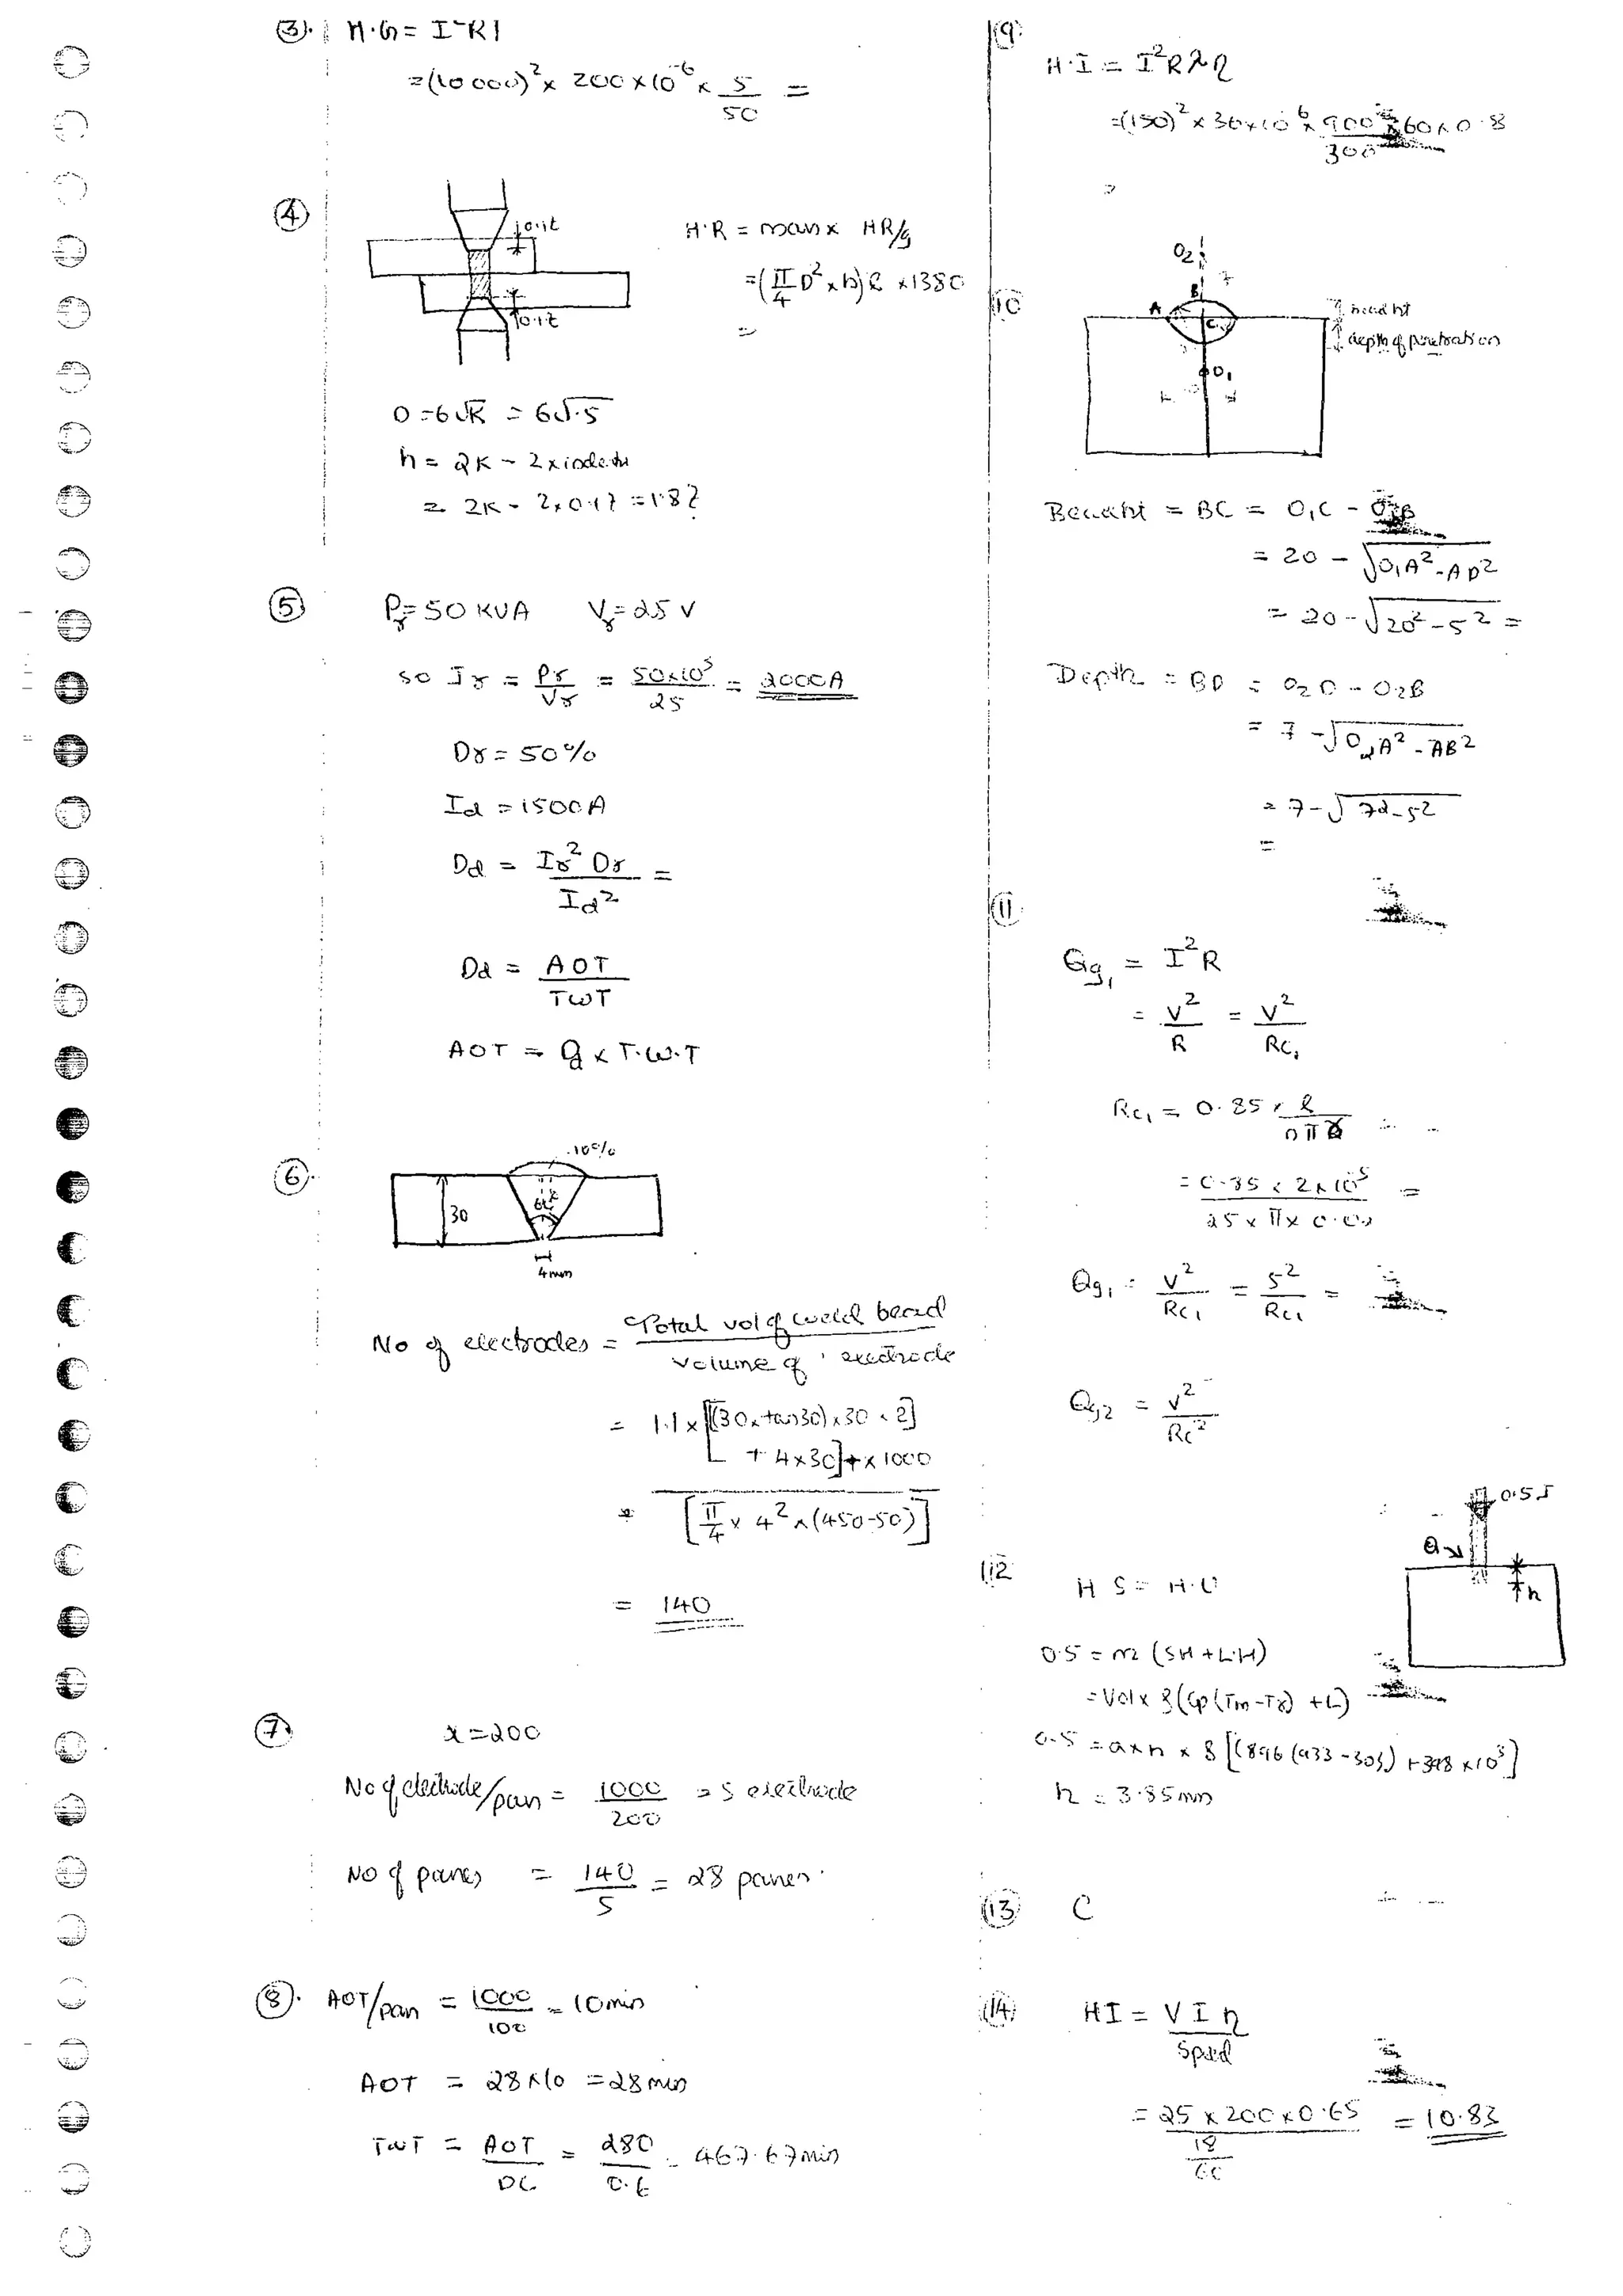 (3). H.G = I²Rt
=(10000)² x 200 x 10⁻⁶ x 5/50 =
(4)
0.1t
0.1t
H.R = mass x HR/g
=(π/4 D² x h)ρ x 1380
=
D = 6√K = 6√1.5
h = 2K - 2 x indeth
= 2K - 2 x 0.1t = 1.8t
(5) Pr = 50 KVA Vr = 25 V
so Ir = Pr/Vr = 50x10³/25 = 2000A
Dr = 50%
Id = 1500A
Dd = Ir² Dr/Id² =
Dd = AOT/TWT
AOT = Dd x T.W.T
(6).
10%
30
60°
4mm
No of electrodes = Total vol of weld bead/volume of 1 electrode
= 1.1 x [[(30 x tan30) x 30 x 2]
+ 4x30] x 1000
[π/4 x 4² x (450-50)]
= 140
(7) x = 200
No of electrode/pan = 1000/200 = 5 electrode
No of panes = 140/5 = 28 panes.
(8). AOT/pan = 1000/100 = 10min
AOT = 28x10 = 28 min
TWT = AOT/DC = 280/0.6 = 467.67min
(9)
H.I = I²Rλη
=(150)² x 36x10⁶ x 900 x 60 x 0.8
300
=
(10)
O2
7
B
A
C
O1
bead ht
depth of penetration
Bead ht = BC = O1C - O1B
= 20 - √O1A² - AD²
= 20 - √20² - 5² =
Depth = BD = O2D - O2B
= 7 - √O2A² - AB²
= 7 - √7² - 5²
=
(11)
Qg1 = I²R
= V²/R = V²/Rc1
Rc1 = 0.85 x ρ/nπ
= 0.85 x 2x10⁵ =
25 x π x
Qg1 = V²/Rc1 = 5²/Rc1 =
Qg2 = V²/Rc2
(12)
0.5J
a
h
H S = H.U
0.5 = m (SH + L.H)
= Vol x ρ(Cp(Tm-Tr) + L)
0.5 = a x h x ρ [(896(933-303) + 398 x10³]
h = 3.85mm
(13) C
(14) HI = V I η/Speed
= 25 x 200 x 0.65 = 10.83
18
60